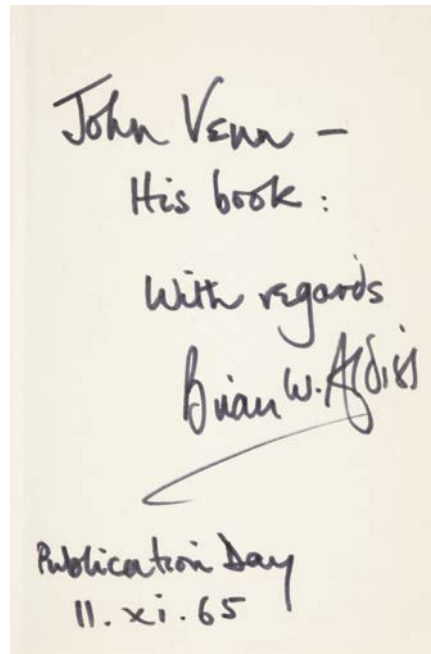 John Venn –
His book :
With regards
Brian W. Aldiss
Publication Day
11. xi. 65